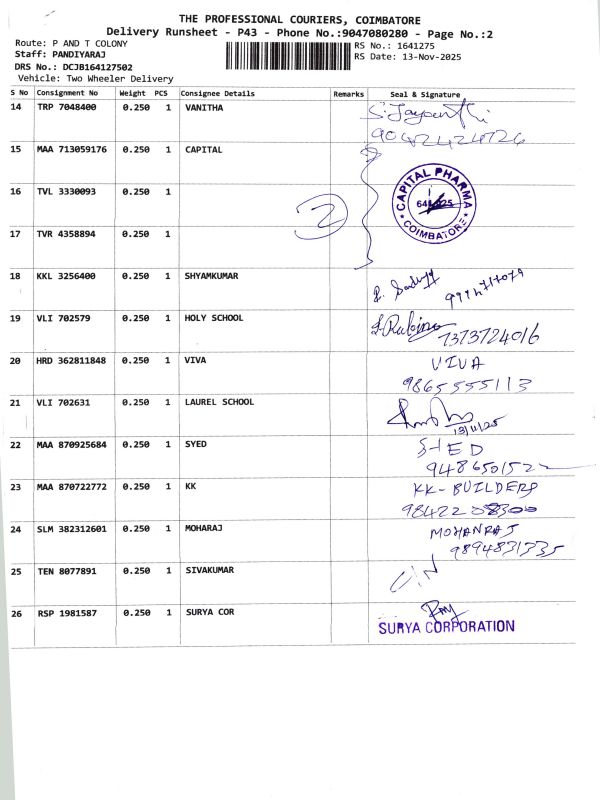 THE PROFESSIONAL COURIERS, COIMBATORE
Delivery Runsheet - P43 - Phone No.:9047080280 - Page No.:2
Route: P AND T COLONY
RS No.: 1641275
Staff: PANDIYARAJ
RS Date: 13-Nov-2025
DRS No.: DCJB164127502
Vehicle: Two Wheeler Delivery
S No Consignment No Weight PCS Consignee Details Remarks Seal & Signature
14 TRP 7048400 0.250 1 VANITHA
15 MAA 713059176 0.250 1 CAPITAL
CAPITAL PHARMA
COIMBATORE
16 TVL 3330093 0.250 1
2
17 TVR 4358894 0.250 1
18 KKL 3256400 0.250 1 SHYAMKUMAR
19 VLI 702579 0.250 1 HOLY SCHOOL
7373724016
20 HRD 362811848 0.250 1 VIVA VIVA
9865555113
21 VLI 702631 0.250 1 LAUREL SCHOOL
13/11/25
22 MAA 870925684 0.250 1 SYED
23 MAA 870722772 0.250 1 KK KK-BUILDERS
24 SLM 382312601 0.250 1 MOHARAJ MOHANRAJ
9894831335
25 TEN 8077891 0.250 1 SIVAKUMAR
26 RSP 1981587 0.250 1 SURYA COR
SURYA CORPORATION